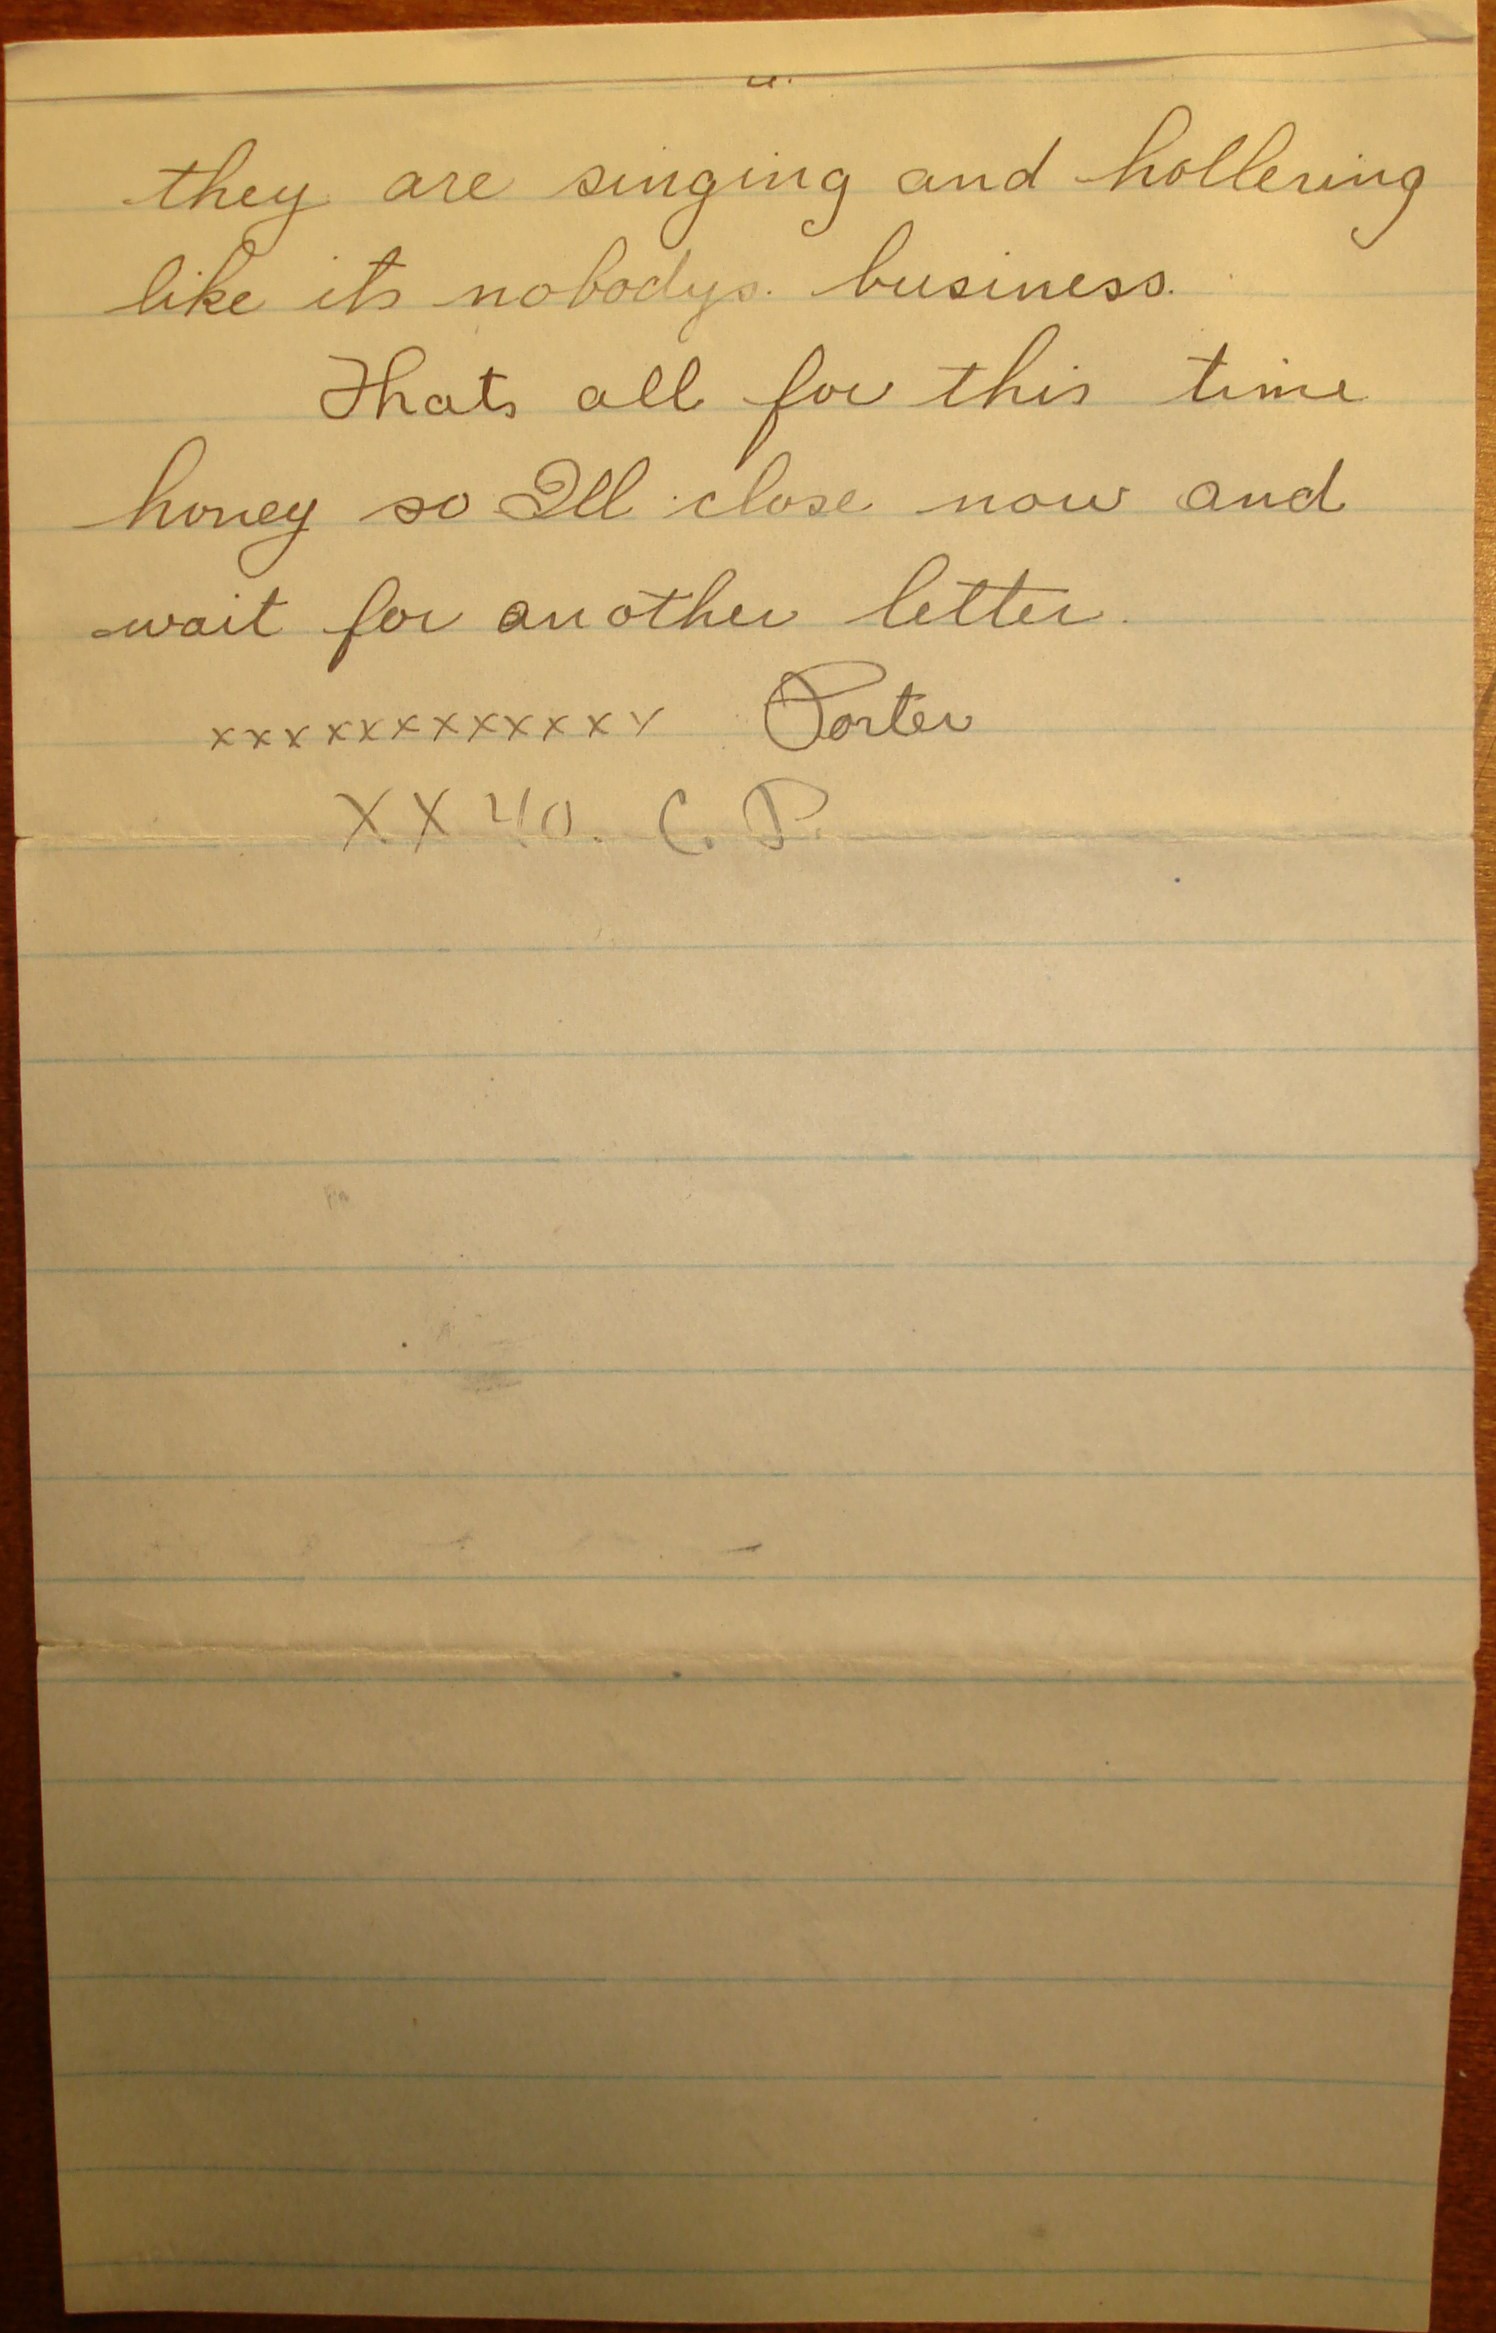 they are singing and hollering
like its nobodys. business.
Thats all for this time
honey so Ill close now and
wait for another letter.
xxxxxxxxxxxxx Porter
XX 40. C. P.